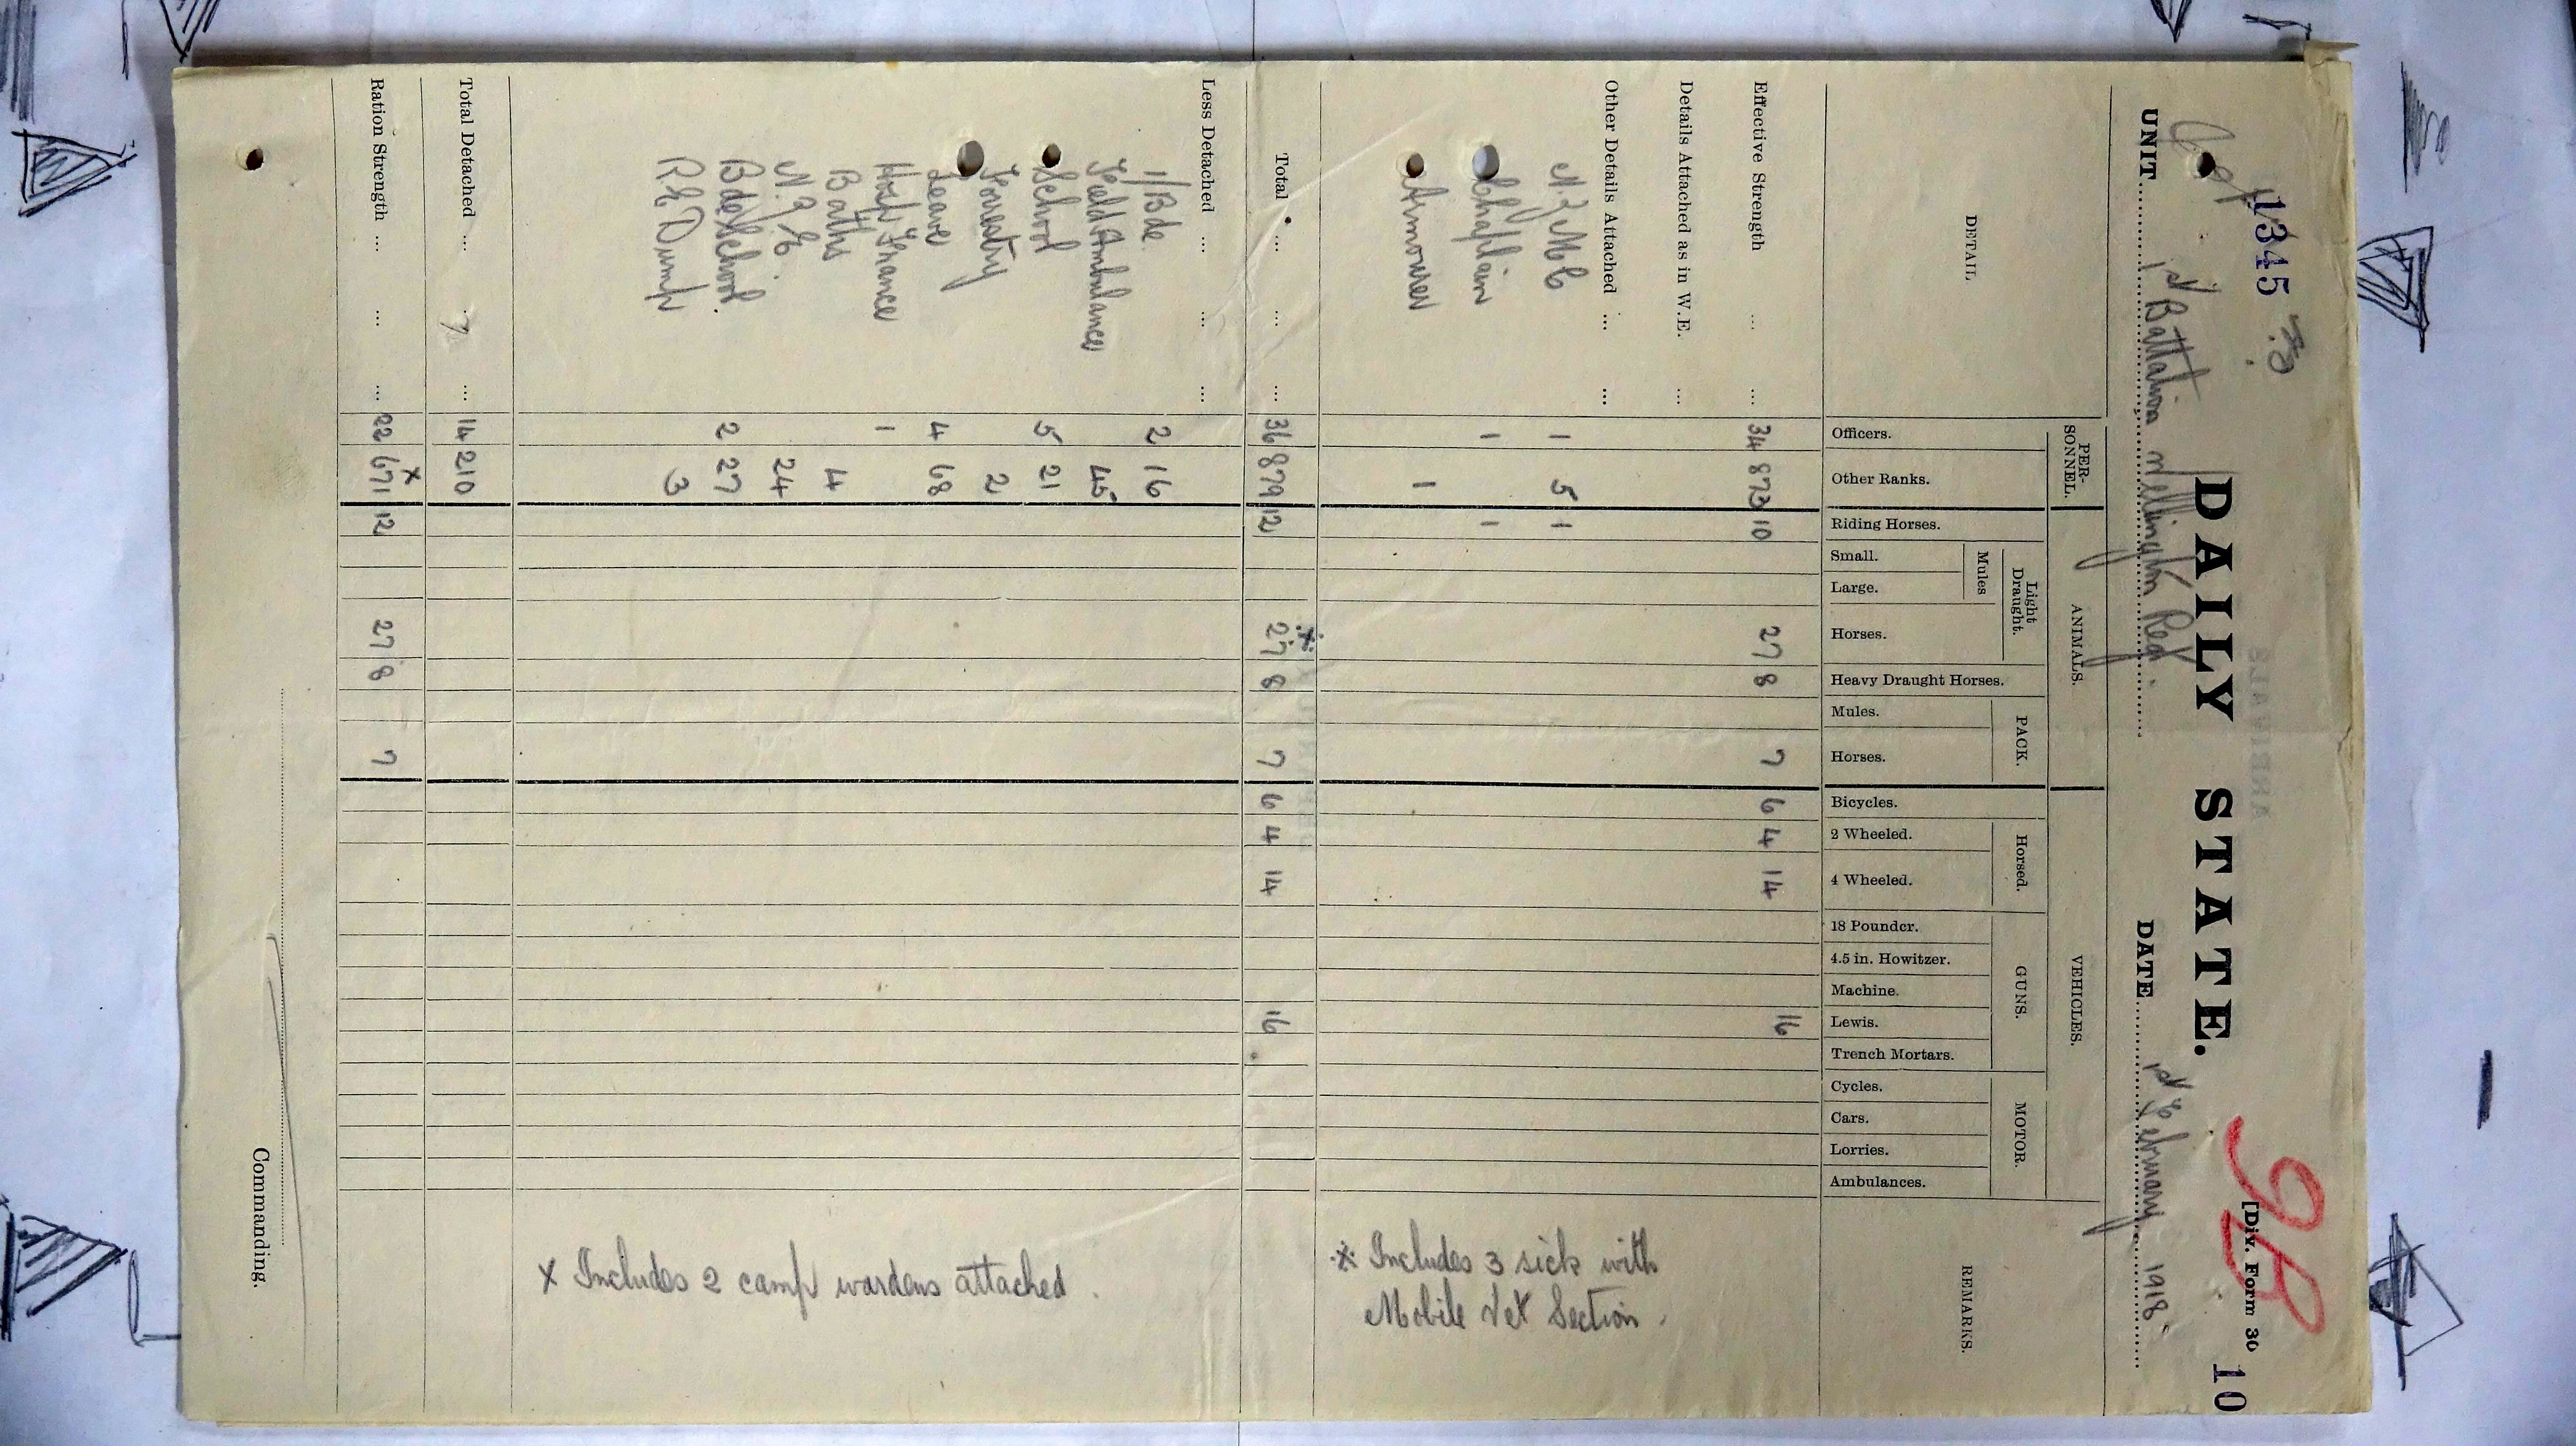 1345
[Div. Form 30
10
DAILY STATE.
UNIT 1st Battalion Wellington Regt. DATE 1st February 1918
DETAIL
PER-
SONNEL.
ANIMALS.
VEHICLES.
REMARKS.
Light
Draught.
Mules
PACK.
Horsed.
GUNS.
MOTOR.
Officers.
Other Ranks.
Riding Horses.
Small.
Large.
Horses.
Heavy Draught Horses.
Mules.
Horses.
Bicycles.
2 Wheeled.
4 Wheeled.
18 Pounder.
4.5 in. Howitzer.
Machine.
Lewis.
Trench Mortars.
Cycles.
Cars.
Lorries.
Ambulances.
Effective Strength ... ... 34 873 10 27 8 7 6 4 14 16
Details Attached as in W.E. ...
Other Details Attached ... ...
N.Z.M.C 1 5 1
Chaplain 1 1
Armourer 1
※ Includes 3 sick with
Mobile Vet Section.
Total ... ... ... 36 879 12 ※27 8 7 6 4 14 16
Less Detached ... ... ...
1/Bde. 2 16
Field Ambulance 45
School 5 21
Forestry 2
Leave 4 68
Hosp France 1
Baths 4
N.Z.E. 24
Bde School. 2 27
R.E Dump 3
x Includes 2 camp wardens attached.
Total Detached ... ... ... 14 210
Ration Strength ... ... ... 22 671 x 12 27 8 7
Commanding.